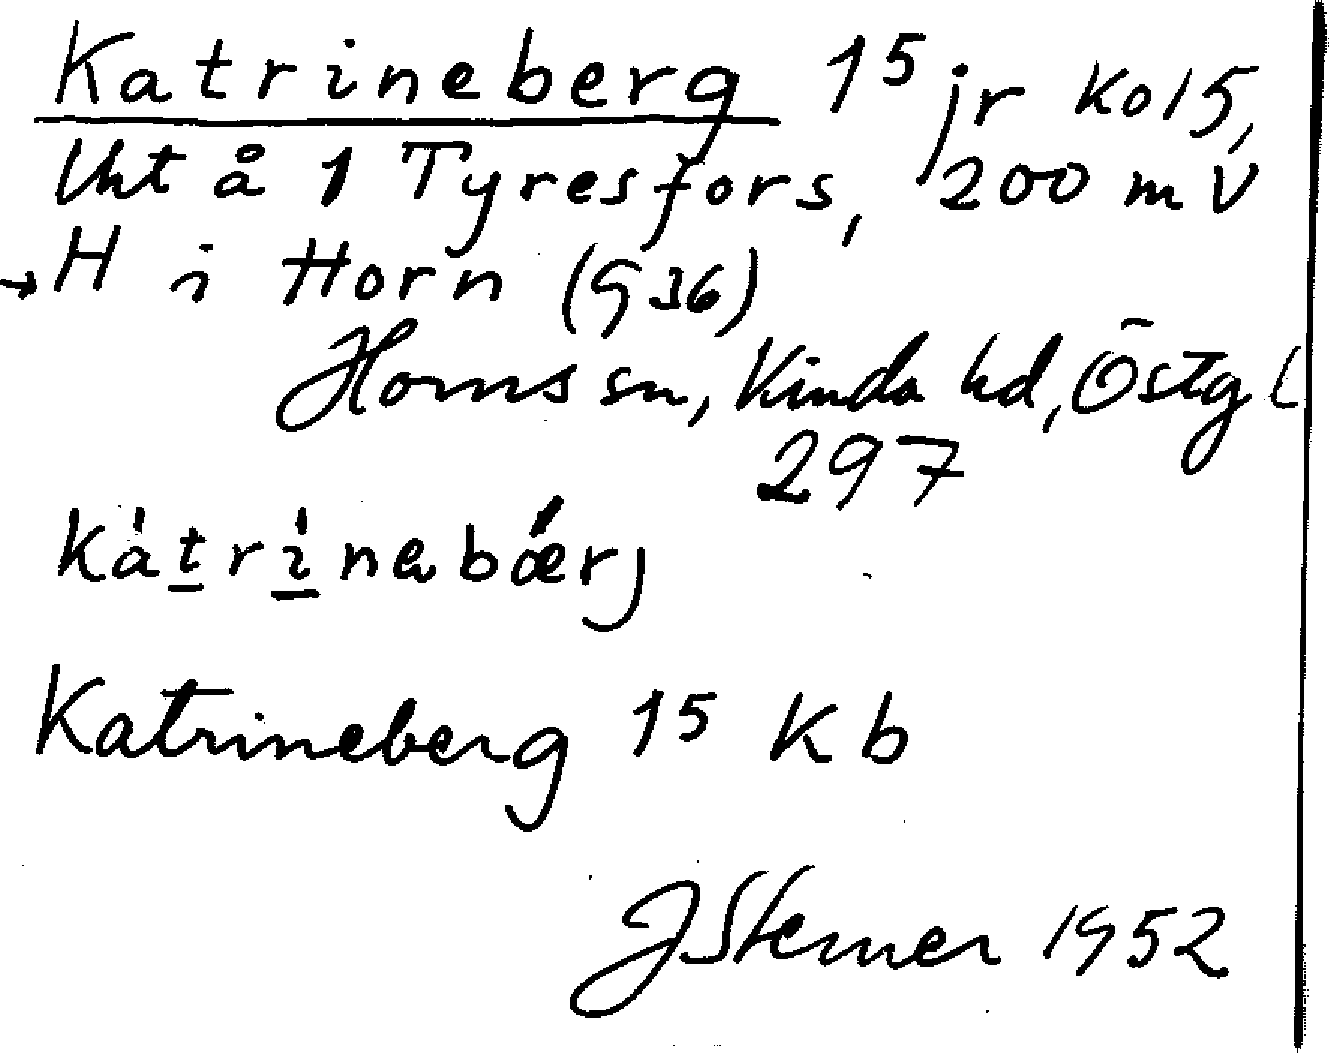 Katrineberg 15 jr Ko 15,
Uht å 1 Tyresfors, 200 m V
→ H i Horn (G 36)
Horns sn, Kinda hd, Östg l
297
Katrineberg 15 Kb
J Sterner 1952